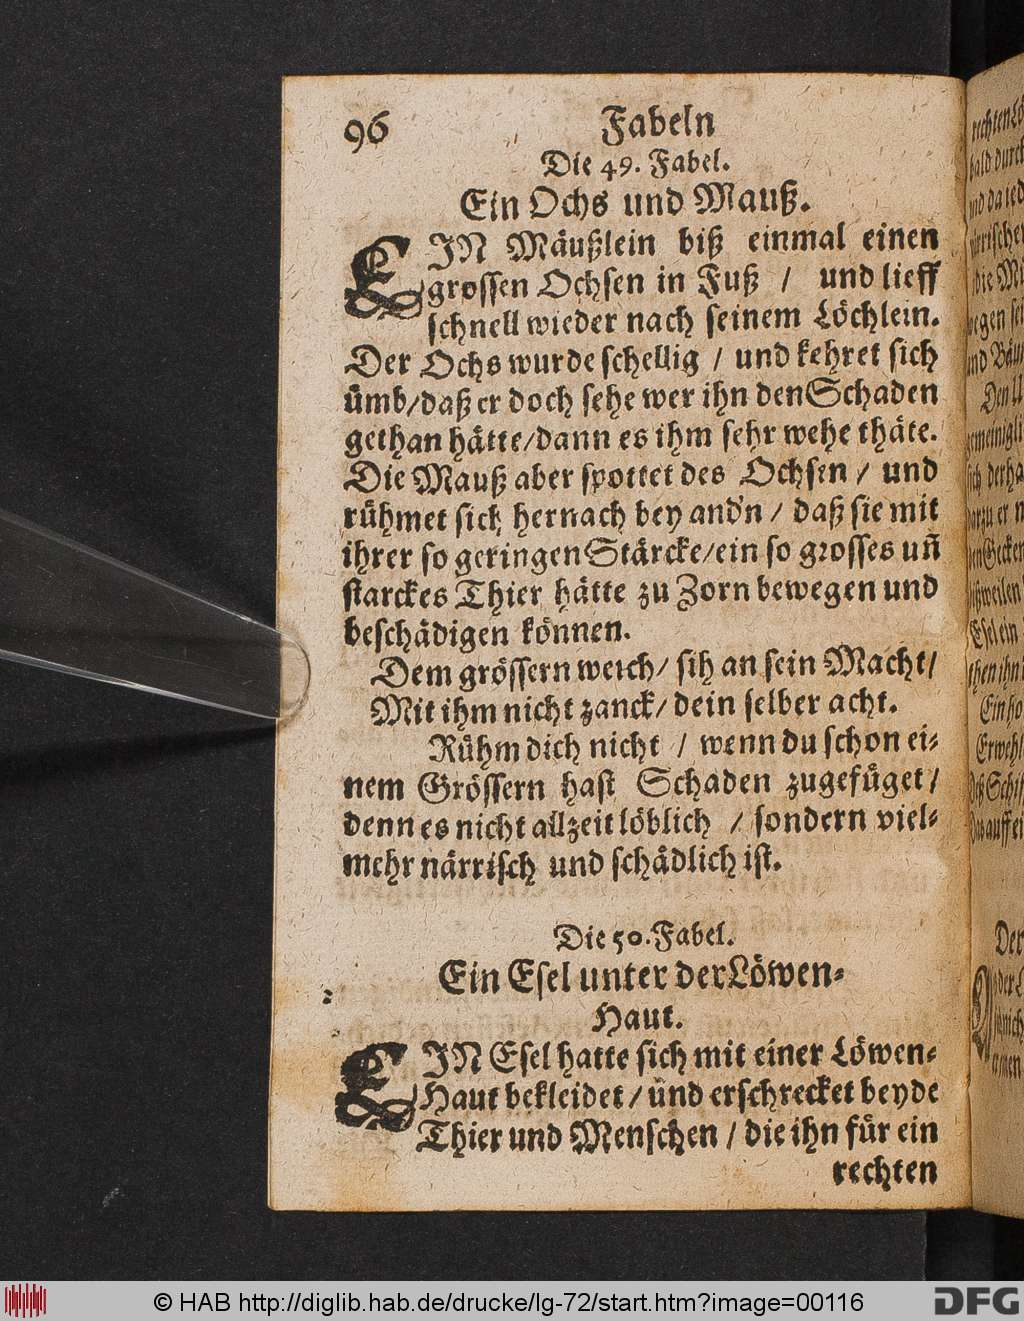 96 Fabeln
Die 49. Fabel.
Ein Ochs und Mauß.
EIN Mäußlein biß einmal einen
grossen Ochsen in Fuß / und lieff
schnell wieder nach seinem Löchlein.
Der Ochs wurde schellig / und kehret sich
ümb/daß er doch sehe wer ihn den Schaden
gethan hätte/dann es ihm sehr wehe thäte.
Die Mauß aber spottet des Ochsen / und
rühmet sich hernach bey and'n / daß sie mit
ihrer so geringen Stärcke/ein so grosses uñ
starckes Thier hätte zu Zorn bewegen und
beschädigen können.
Dem grössern weich/ sih an sein Macht/
Mit ihm nicht zanck/ dein selber acht.
Rühm dich nicht / wenn du schon ei-
nem Grössern hast Schaden zugefüget/
denn es nicht allzeit löblich / sondern viel-
mehr närrisch und schädlich ist.
Die 50. Fabel.
Ein Esel unter der Löwen-
Haut.
EIN Esel hatte sich mit einer Löwen-
Haut bekleidet / und erschrecket beyde
Thier und Menschen / die ihn für ein
rechten
© HAB http://diglib.hab.de/drucke/lg-72/start.htm?image=00116
DFG